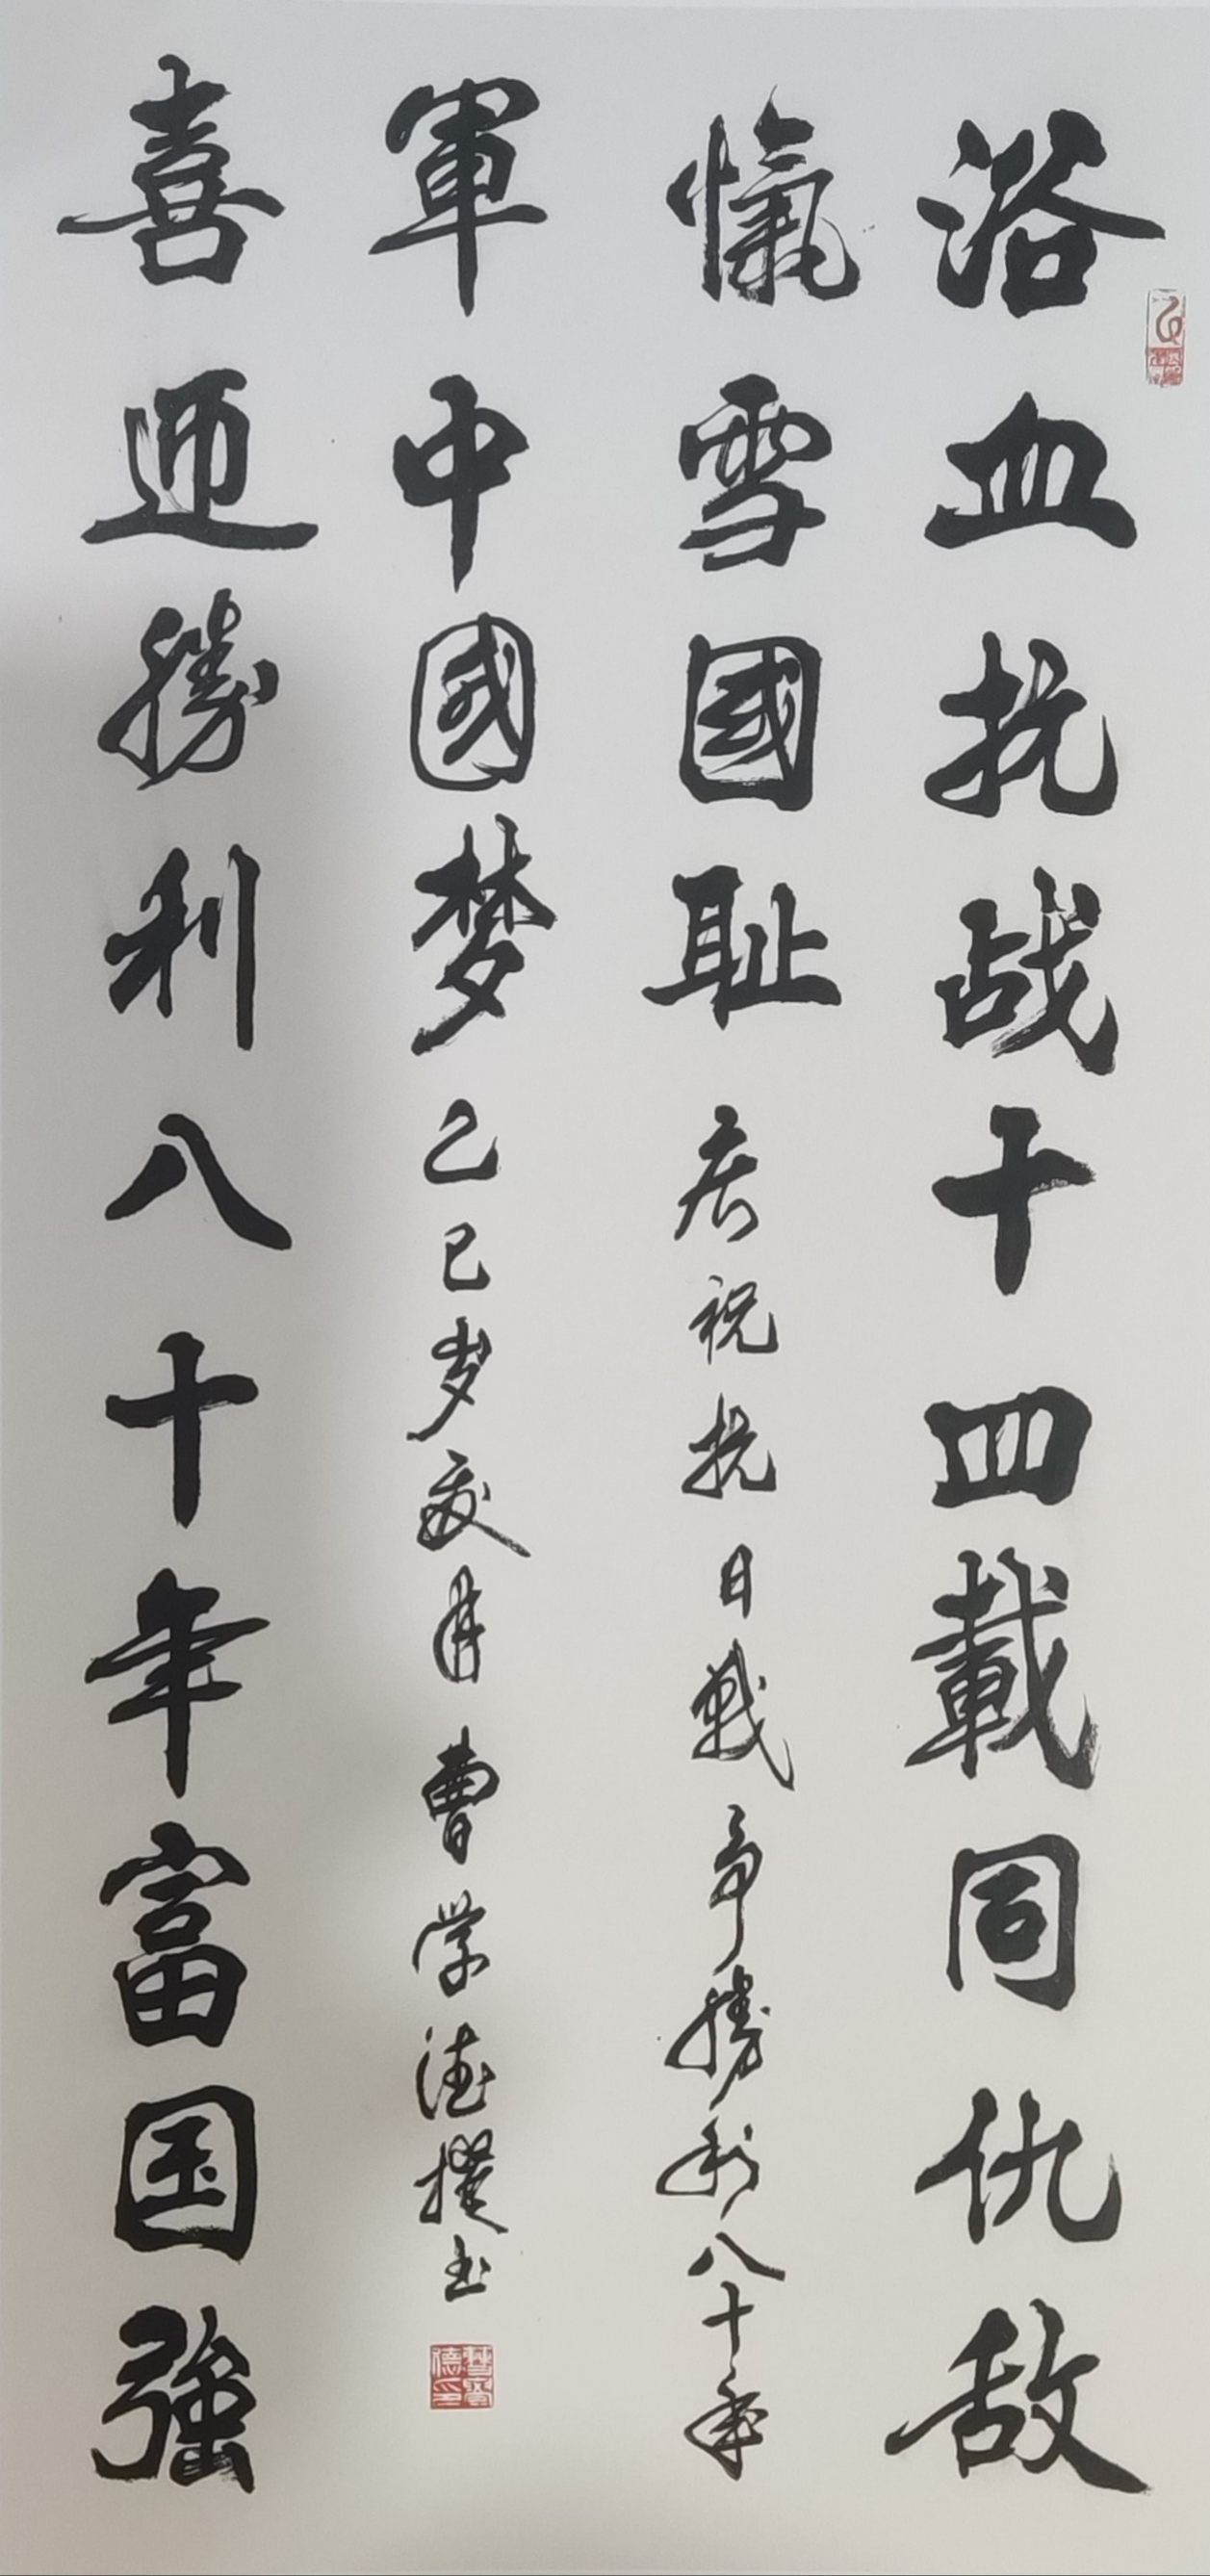 浴血抗战十四載同仇敌
愾雪國耻 庆祝抗日戰争勝利八十年
喜迎勝利八十年富国強
軍中國梦 乙巳岁夏月 曹学德撰书
曹學德印